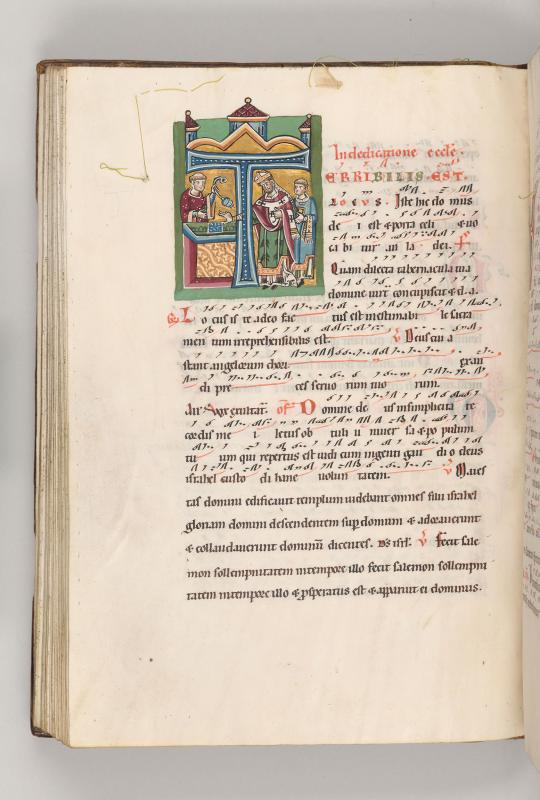 In dedicatione eccłe.
T ERRIBILIS. EST.
LOCVS. Iste hic domus
dei est & porta celi & uo
cabitur aula dei.
Quam dilecta tabernacula tua
domine uirt concupiscit & d. a.
Locus iste a deo factus est inestimabile sacra
mentum irreprehensibilis est. V Deus cui a
stant angelorum chori
di preces seruorum tuorum.
All' Vox exultat. of Domine deus in simplicitate
cordis mei letus obtuli uniuersa & po pulum
tuum qui repertus est uidi cum ingenti gaudio deus
israhel custodi hanc uoluntatem. V Maies
tas domini edificauit templum uidebant omnes filii israhel
gloriam domini descendentem sup domum & adorauerunt
& collaudauerunt dominū dicentes. Ds isrl. V Fecit sale
mon sollempnitatem in tempore illo fecit salemon sollempni
tatem in tempore illo & psperatus est & apparuit ei dominus.